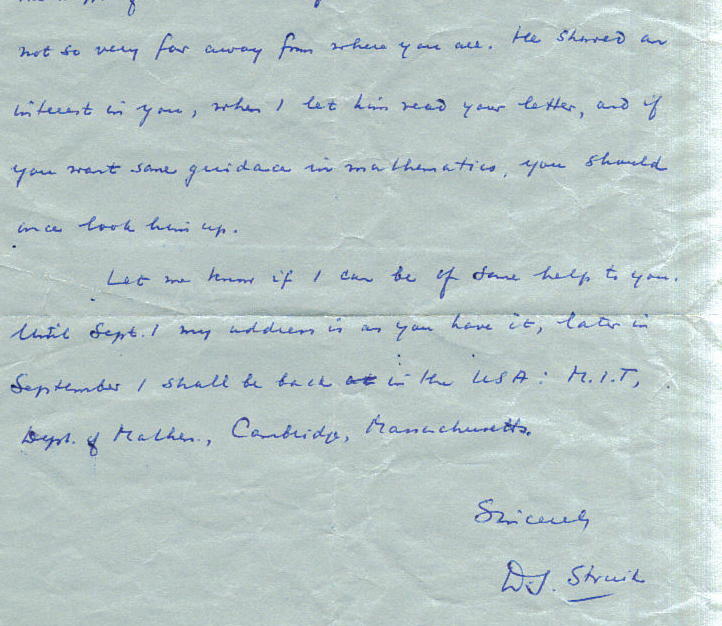 not so very far away from where you are. He showed an
interest in you, when I let him read your letter, and if
you want some guidance in mathematics, you should
once look him up.
Let me know if I can be of some help to you.
Until Sept. 1 my address is as you have it, later in
September I shall be back at in the USA: M.I.T,
Dept. of Mathem., Cambridge, Massachusetts.
Sincerely
D.J. Struik